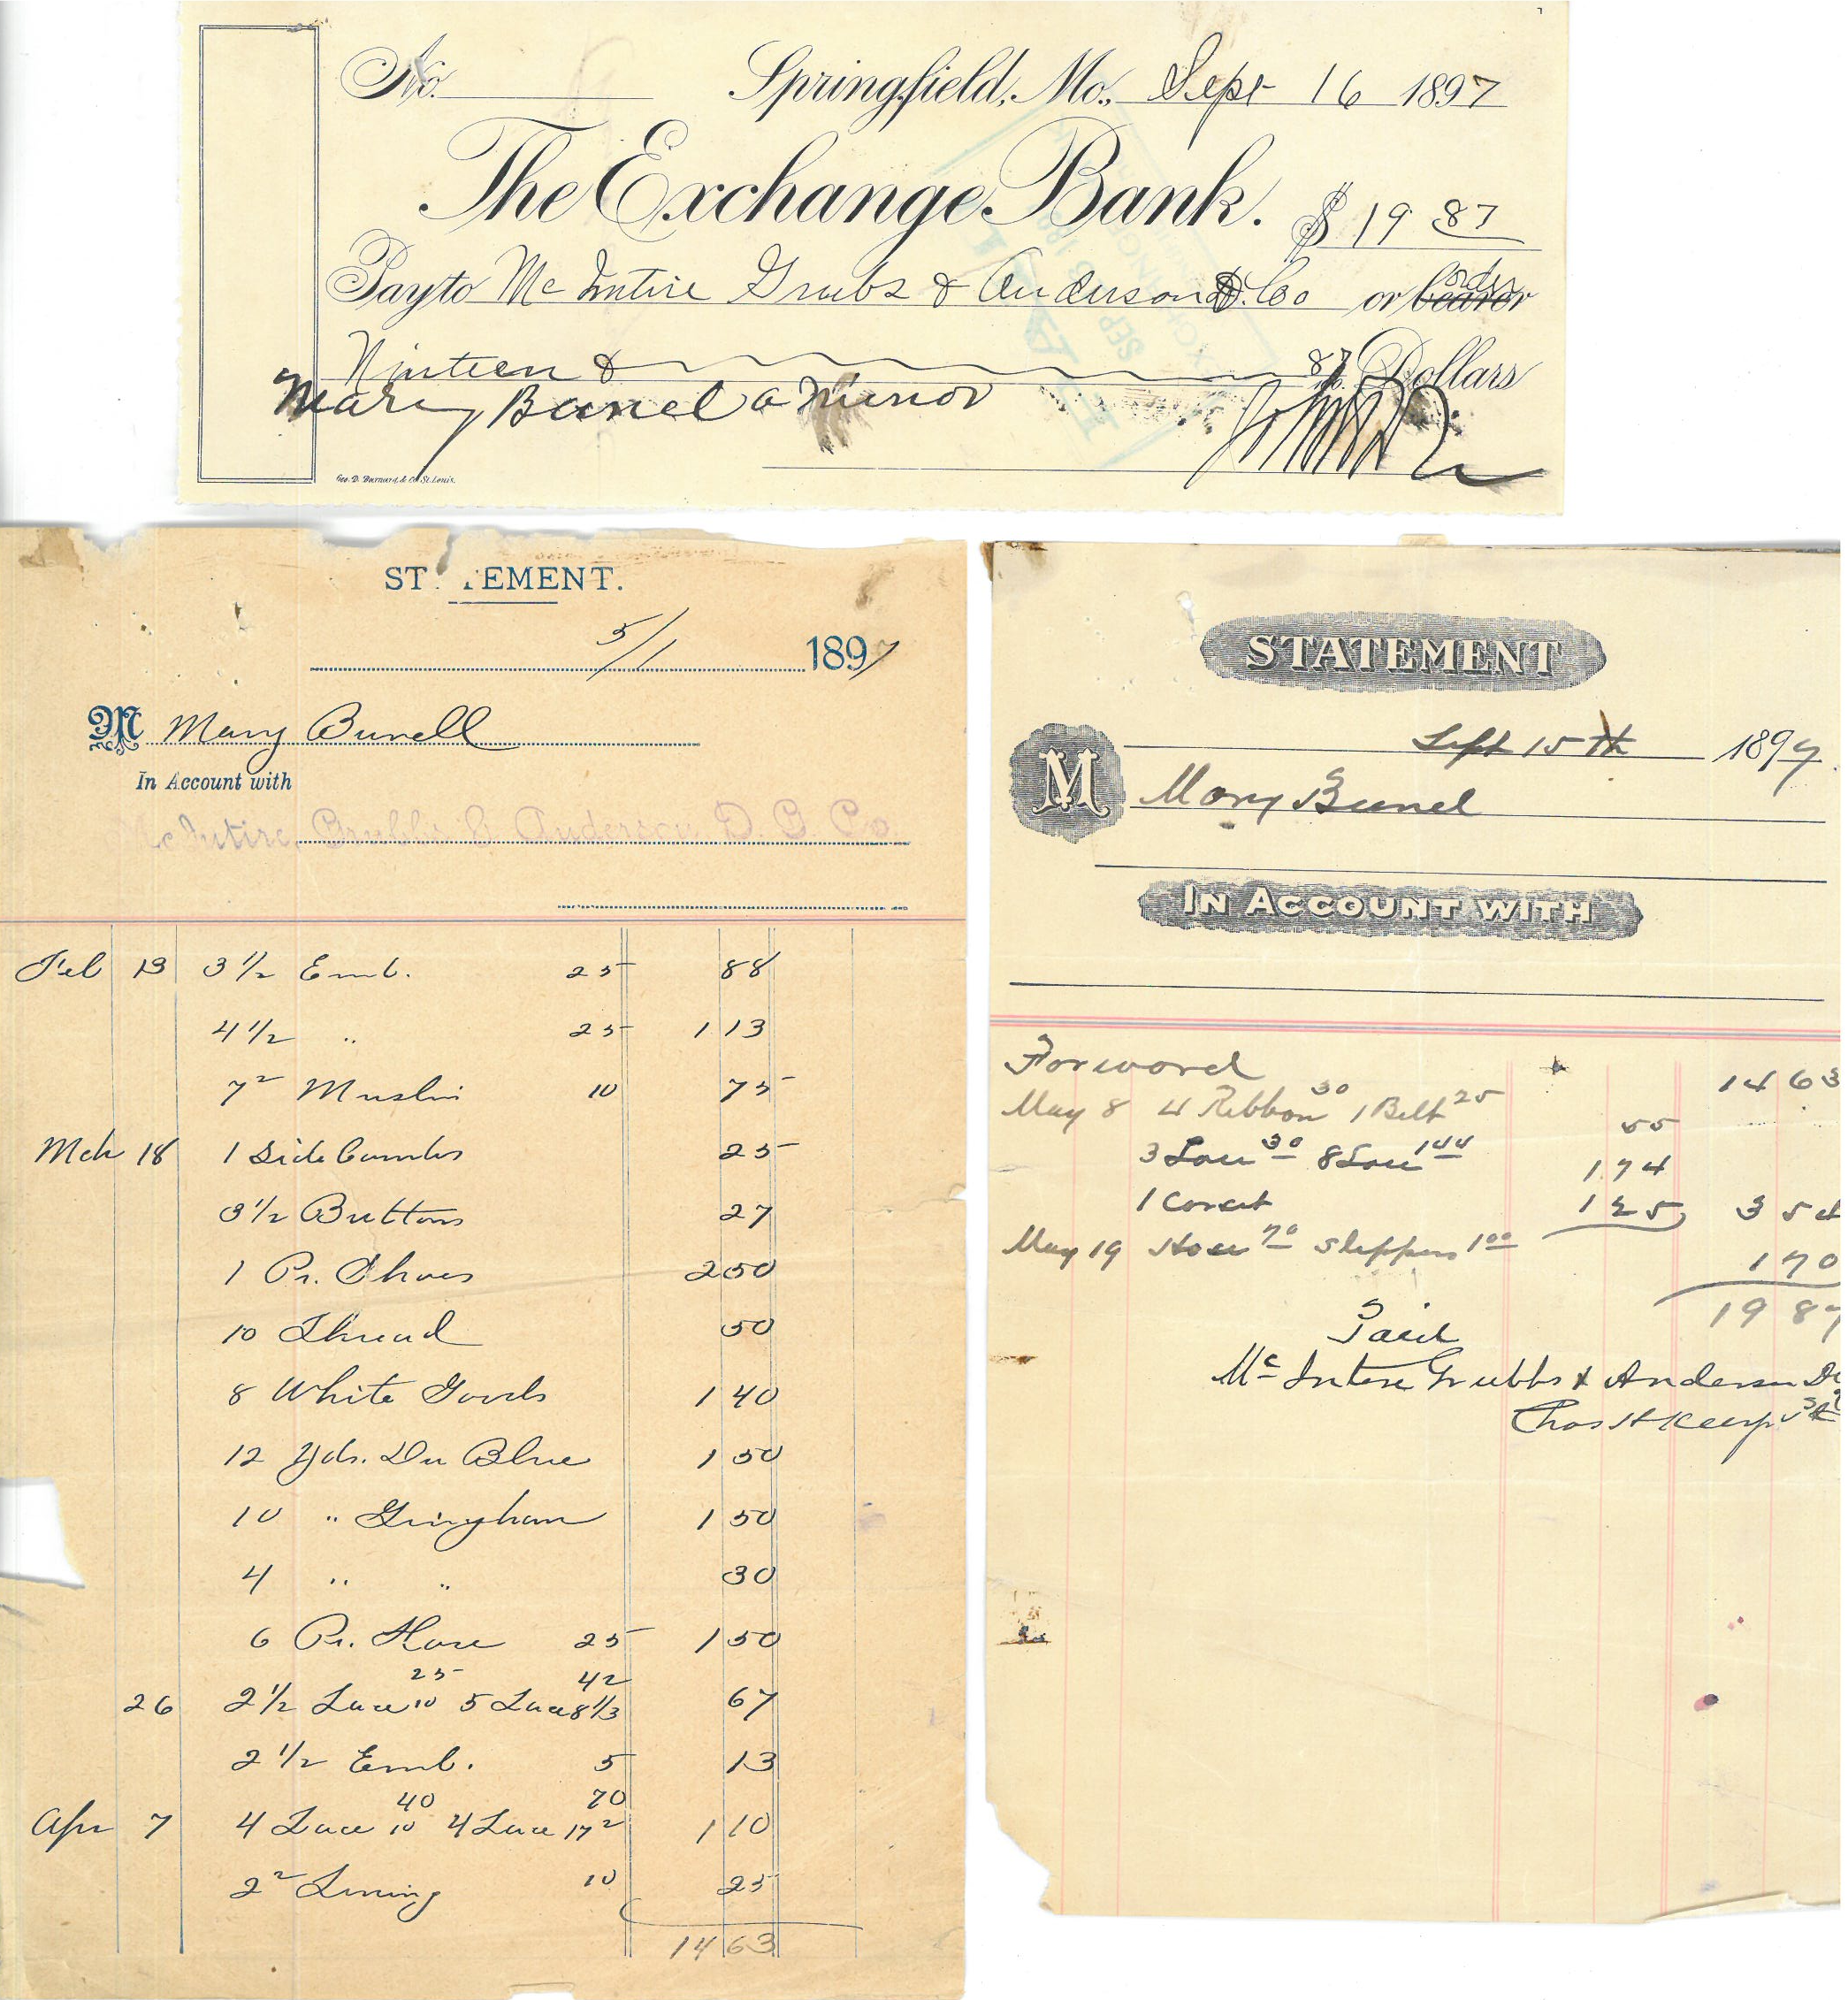 No. Springfield, Mo., Sept 16 1897
The Exchange Bank. $ 19 87
Pay to Mc Intire Grubs & Anderson D. Co or bearer order
Ninteen & 87/100 Dollars
Mary Bunel a Minor
Geo. D. Barnard & Co. St. Louis.
STATEMENT.
5/1 1897
M Mary Bunell
In Account with
McIntire, Grubbs & Anderson D. G. Co.
Feb 13 3 1/2 Emb. 25 88
4 1/2 " 25 1 13
7 2 Muslin 10 75
Mch 18 1 Side Combs 25
3 1/2 Buttons 27
1 Pr. Shoes 2 50
10 Thread 50
8 White Goods 1 40
12 Yds. Du Blue 1 50
10 " Gingham 1 50
4 " " 30
6 Pr. Hose 25 1 50
25 42
26 2 1/2 Lace 10 5 Lace 8 1/3 67
2 1/2 Emb. 5 13
40 70
Apr 7 4 Lace 10 4 Lace 17 2 1 10
2 2 Lining 10 25
14 63
STATEMENT
Sept 15th 1897
M Mary Bunel
IN ACCOUNT WITH
Forword 14 63
May 8 4 Ribbon 30 1 Belt 25 55
3 Lace 30 8 Lace 1 44 1 74
1 Corset 1 25 3 54
May 19 Hose 70 Slippers 1 00 1 70
19 87
Paid
Mc Intire Grubbs & Anderson
Chas H Keerp